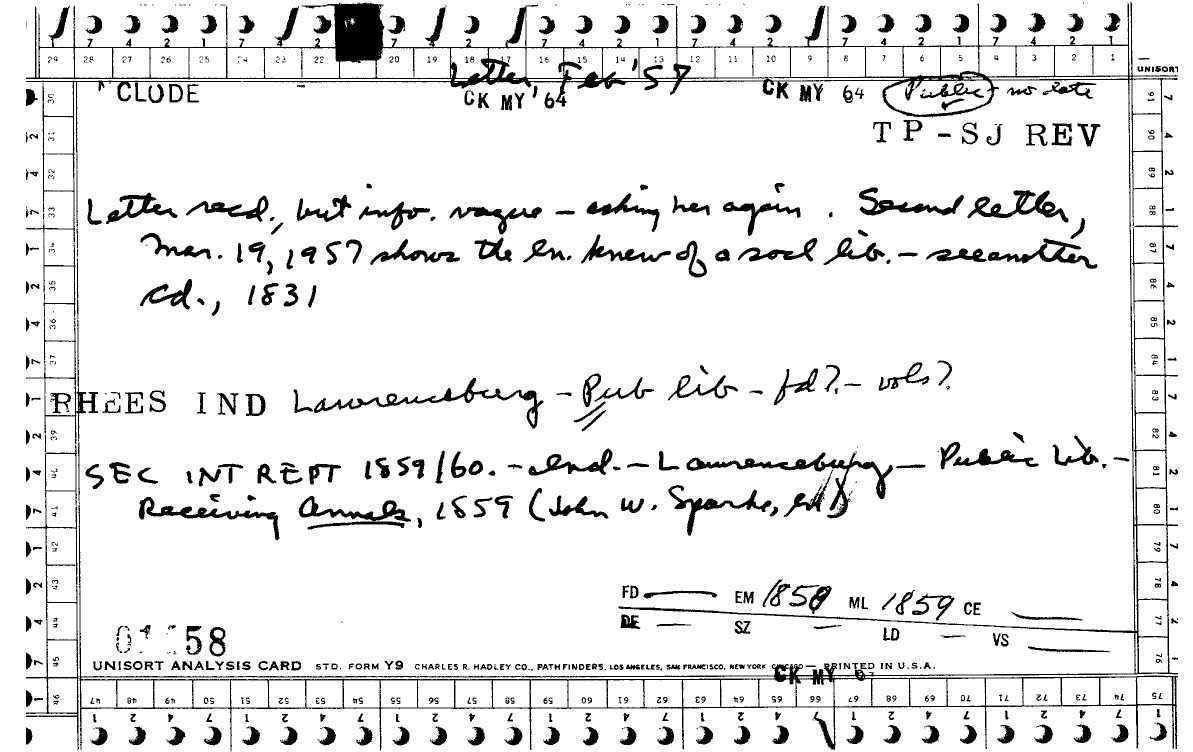 7 4 2 1 7 4 2 7 4 2 1 7 4 2 1 7 4 2 1 7 4 2 1 7 4 2 1
29 28 27 26 25 24 23 22 20 19 18 17 16 15 14 13 12 11 10 9 8 7 6 5 4 3 2 1
UNISORT
Letter, Feb '57
CLODE
CK MY '64
CK MY 64
Public - no date
TP-SJ REV
Letter recd., but info. vague - asking her again. Second letter,
Mar. 19, 1957 shows the ln. knew of a socl lib. - see another
cd., 1831
RHEES IND Lawrenceburg - Pub lib - fd? - vols?
SEC INT REPT 1859/60. - Ind. - Lawrenceburg, - Public Lib. -
Receiving Annals, 1859 (John W. Sparks,
FD EM 1858 ML 1859 CE
DE SZ LD VS
58
UNISORT ANALYSIS CARD STD. FORM Y9 CHARLES R. HADLEY CO., PATHFINDERS, LOS ANGELES, SAN FRANCISCO, NEW YORK CHICAGO PRINTED IN U.S.A.
CK MY
47 48 49 50 51 52 53 54 55 56 57 58 59 60 61 62 63 64 65 66 67 68 69 70 71 72 73 74 75